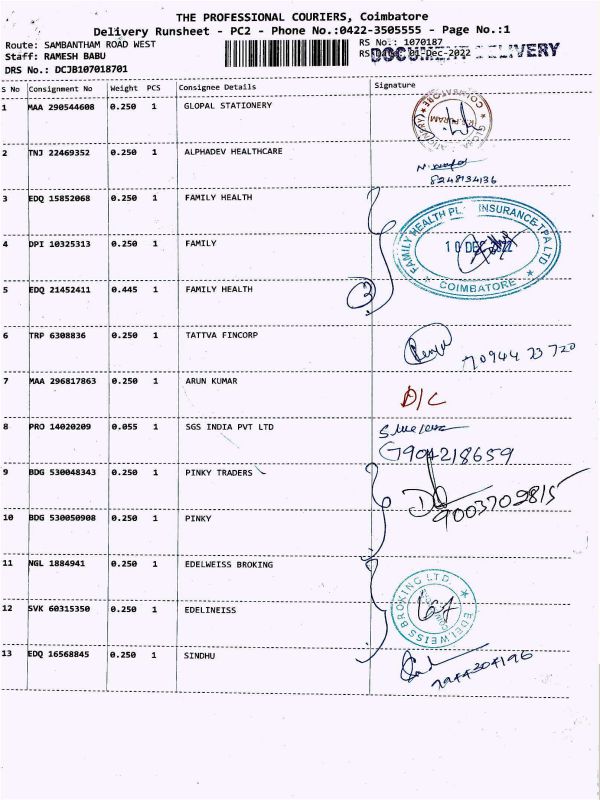 THE PROFESSIONAL COURIERS, Coimbatore
Delivery Runsheet - PC2 - Phone No.:0422-3505555 - Page No.:1
Route: SAMBANTHAM ROAD WEST
RS No.: 1070187
Staff: RAMESH BABU
RS Date: 01-Dec-2022
DOCUMENT DELIVERY
DRS No.: DCJB107018701
S No Consignment No Weight PCS Consignee Details Signature
1 MAA 290544608 0.250 1 GLOPAL STATIONERY
2 TNJ 22469352 0.250 1 ALPHADEV HEALTHCARE
8248134136
3 EDQ 15852068 0.250 1 FAMILY HEALTH
FAMILY HEALTH PL INSURANCE TPA LTD
4 DPI 10325313 0.250 1 FAMILY
10 DEC 2022
COIMBATORE
5 EDQ 21452411 0.445 1 FAMILY HEALTH
3
6 TRP 6308836 0.250 1 TATTVA FINCORP
70944 23720
7 MAA 296817863 0.250 1 ARUN KUMAR
D/C
8 PRO 14020209 0.055 1 SGS INDIA PVT LTD
7904218659
9 BDG 530048343 0.250 1 PINKY TRADERS
9003709815
10 BDG 530050908 0.250 1 PINKY
11 NGL 1884941 0.250 1 EDELWEISS BROKING
EDELWEISS BROKING LTD.
12 SVK 60315350 0.250 1 EDELINEISS
13 EDQ 16568845 0.250 1 SINDHU